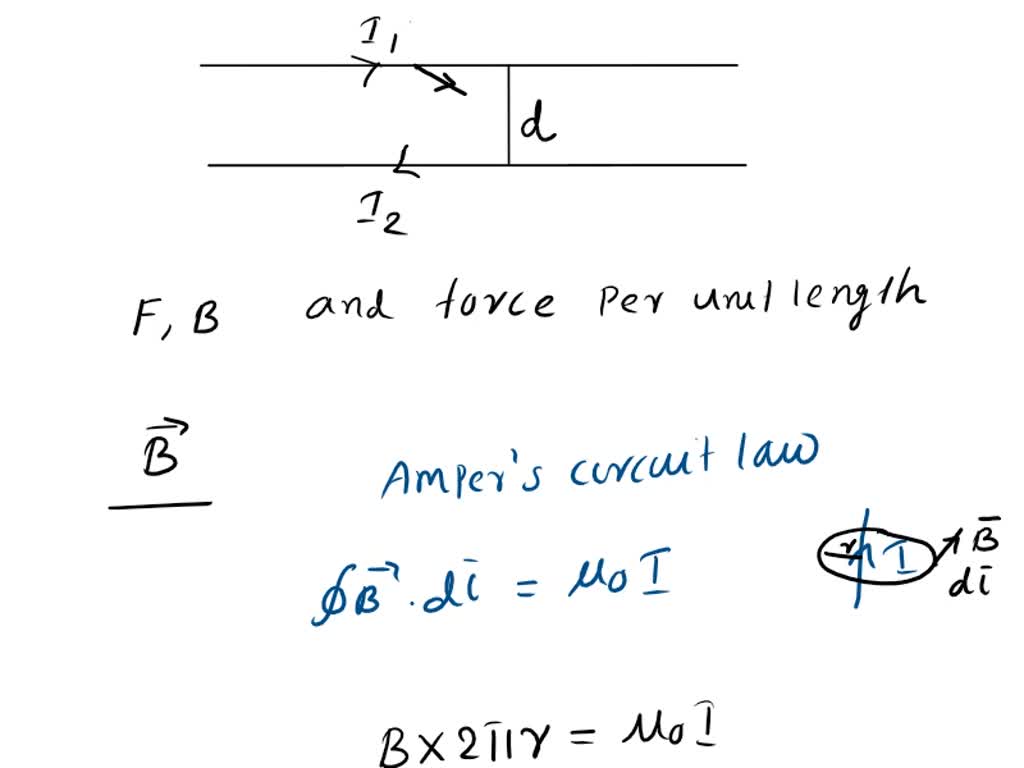 I1
d
I2
F, B and force Per unit length
B⃗
Amper's circuit law
∮B⃗ . dl̄ = μ0 I
r I B̄
dl̄
B × 2πr = μ0 I